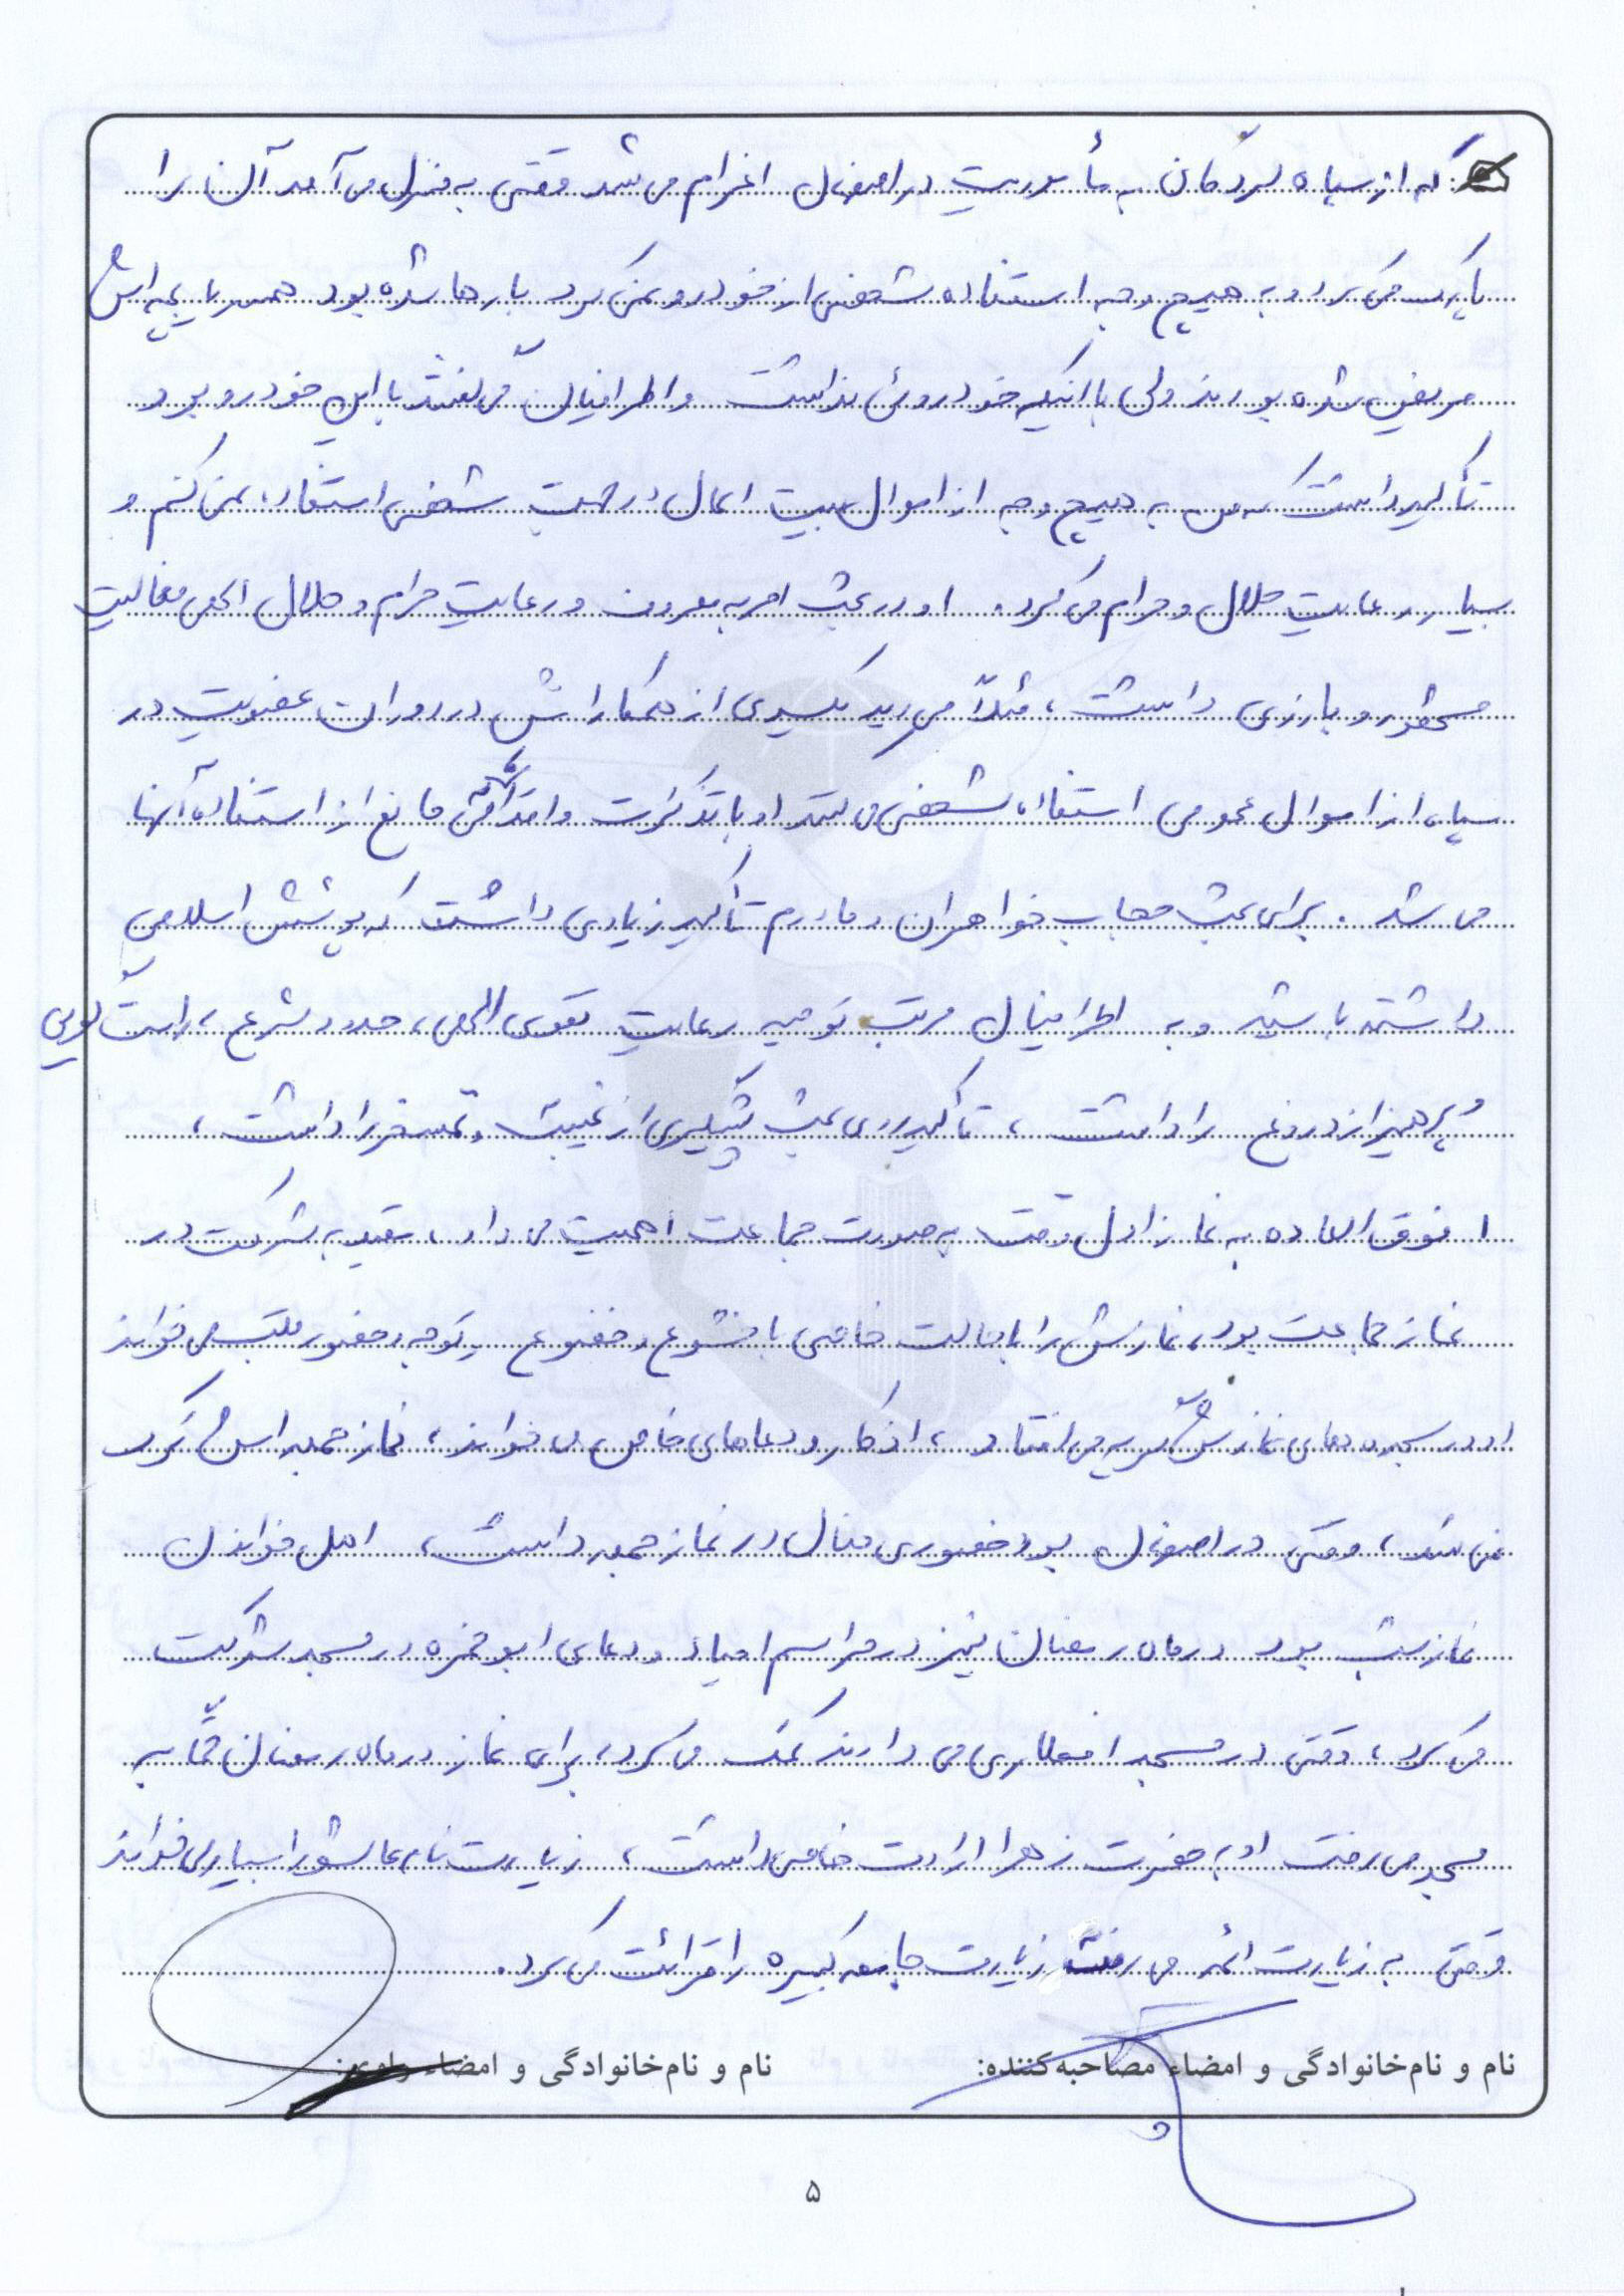 که از سپاه لردگان به مأموریت در اصفهان اعزام می شد وقتی به منزل می آمد آن را
پارک می کرد و به هیچ وجه استفاده شخصی از خودرو نمی کرد بارها شده بود همسر یا بچه اش
مریض شده بودند ولی با اینکه خودروئی نداشت و اطرافیان می گفتند با این خودرو برو
تأکید داشت که من به هیچ وجه از اموال بیت المال در جهت شخصی استفاده نمی کنم و
بسیار رعایت حلال و حرام می کرد. او در بحث امر به معروف و رعایت حرام و حلال الهی فعالیت
محظور و بارزی داشت، مثلاً می دید یکسری از همکارانش در دوران عضویت در
سپاه از اموال عمومی استفاده شخصی می کنند او با تذکرات و اقداماتش مانع از استفاده آنها
می شد. برای بحث حجاب خواهران و مادرم تأکید زیادی داشت که پوشش اسلامی
داشته باشید و به اطرافیان مرتب توصیه رعایت تقوی الهی، حدود شرع، راست گویی
و پرهیز از دروغ را داشت، تأکید روی بحث پیشگیری از غیبت و تمسخر را داشت،
او فوق العاده به نماز اول وقت به صورت جماعت اهمیت می داد، مقید به شرکت در
نماز جماعت بود، نمازش را با حالت خاصی با خشوع و خضوع و توجه و حضور قلب می خواند
او در سجده های نمازش گریه می افتاد، اذکار و دعاهای خاصی می خواند، نماز جمعه اش ترک
نمی شد، وقتی در اصفهان بود حضوری فعال در نماز جمعه داشت، اهل خواندن
نماز شب بود در ماه رمضان نیز در مراسم احیاء و دعای ابوحمزه در مسجد شرکت
می کرد، وقتی در مسجد افطاری می دادند کمک می کرد، برای نماز در ماه رمضان حتماً به
مسجد می رفت او به حضرت زهرا ارادت خاصی داشت، زیارت نامه عاشورا بسیار می خواند
وقتی به زیارت ائمه می رفت زیارت جامعه کبیره را قرائت می کرد.
نام و نام‌خانوادگی و امضاء مصاحبه‌کننده: نام و نام‌خانوادگی و امضاء راوی:
۵